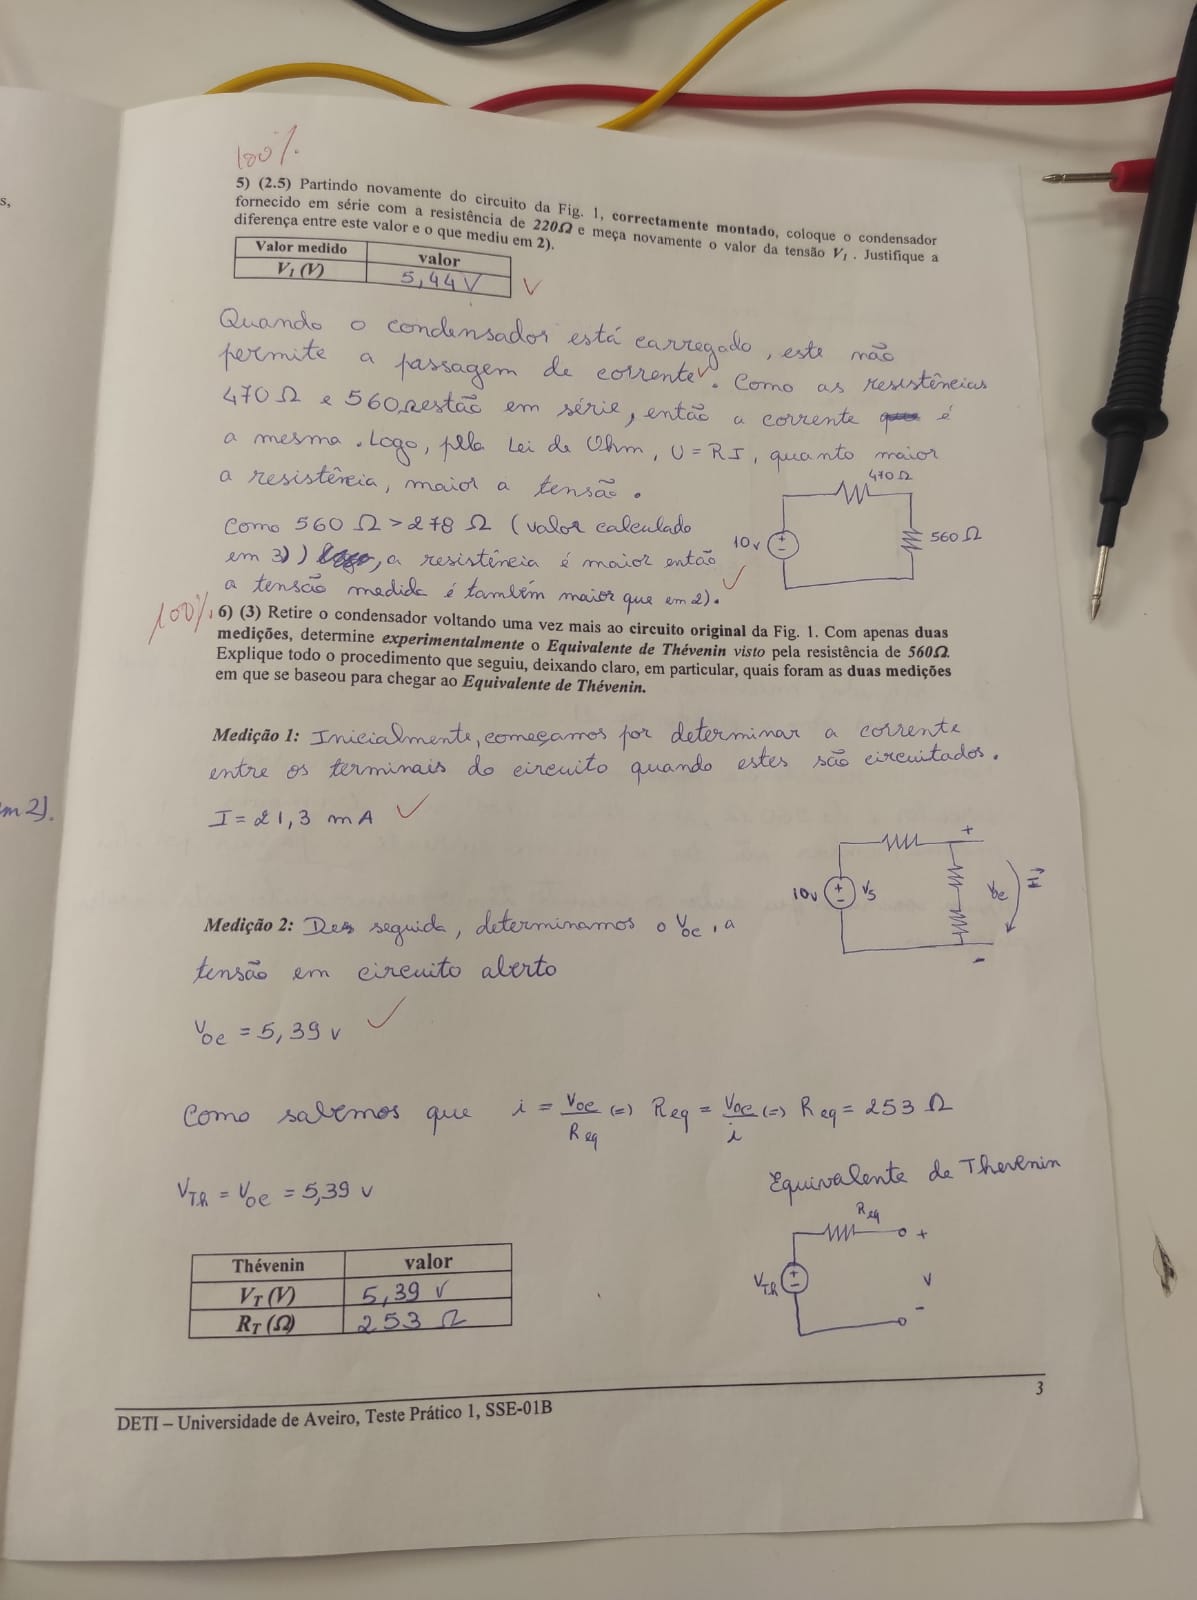 100%
5) (2.5) Partindo novamente do circuito da Fig. 1, correctamente montado, coloque o condensador
fornecido em série com a resistência de 220Ω e meça novamente o valor da tensão V1 . Justifique a
diferença entre este valor e o que mediu em 2).
s,
Valor medido valor
V1 (V) 5,44 V
Quando o condensador está carregado, este não
permite a passagem de corrente. Como as resistências
470 Ω e 560Ω estão em série, então a corrente é
a mesma. Logo, pela Lei de Ohm, U = RI, quanto maior
a resistência, maior a tensão.
470 Ω
Como 560 Ω > 278 Ω (valor calculado
10v
560 Ω
em 3)), a resistência é maior então
a tensão medida é também maior que em 2).
100%
6) (3) Retire o condensador voltando uma vez mais ao circuito original da Fig. 1. Com apenas duas
medições, determine experimentalmente o Equivalente de Thévenin visto pela resistência de 560Ω.
Explique todo o procedimento que seguiu, deixando claro, em particular, quais foram as duas medições
em que se baseou para chegar ao Equivalente de Thévenin.
Medição 1: Inicialmente, começamos por determinar a corrente
entre os terminais do circuito quando estes são circuitados.
m 2).
I = 21,3 mA
+
10v
+
-
Vs
Voc
-
Medição 2: seguida, determinamos o Voc, a
tensão em circuito aberto
Voc = 5,39 v
Como sabemos que i = Voc/Req (=) Req = Voc/i (=) Req = 253 Ω
VTR = Voc = 5,39 v
Equivalente de Thevenin
Req
+
VTR
+
-
V
-
Thévenin valor
VT (V) 5,39 V
RT (Ω) 253 Ω
3
DETI – Universidade de Aveiro, Teste Prático 1, SSE-01B